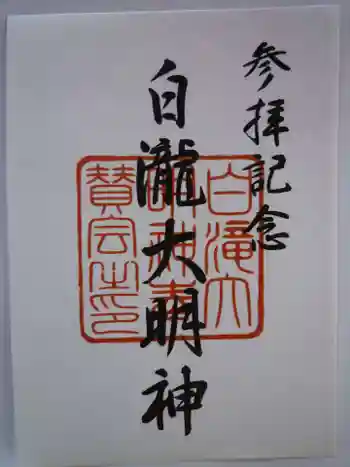 参拝記念
白瀧大明神
白滝大
賛会之印